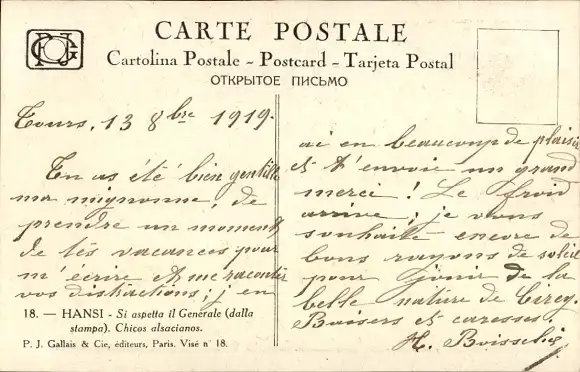 CARTE POSTALE
Cartolina Postale - Postcard - Tarjeta Postal
ОТКРЫТОЕ ПИСЬМО
Tours, 13 8bre 1919.
Tu as été bien gentille
ma mignonne, de
prendre un moment
de tes vacances pour
m'écrire et me raconter
vos distractions; j'en
ai eu beaucoup de plaisir
et t'envoie un grand
merci! Le froid
arrive; je vous
souhaite encore de
bons rayons de soleil
pour jouir de la
belle nature de Cirey.
Baisers et caresses.
H.
18. — HANSI - Si aspetta il Generale (dalla
stampa). Chicos alsacianos.
P. J. Gallais & Cie, éditeurs, Paris. Visé n° 18.